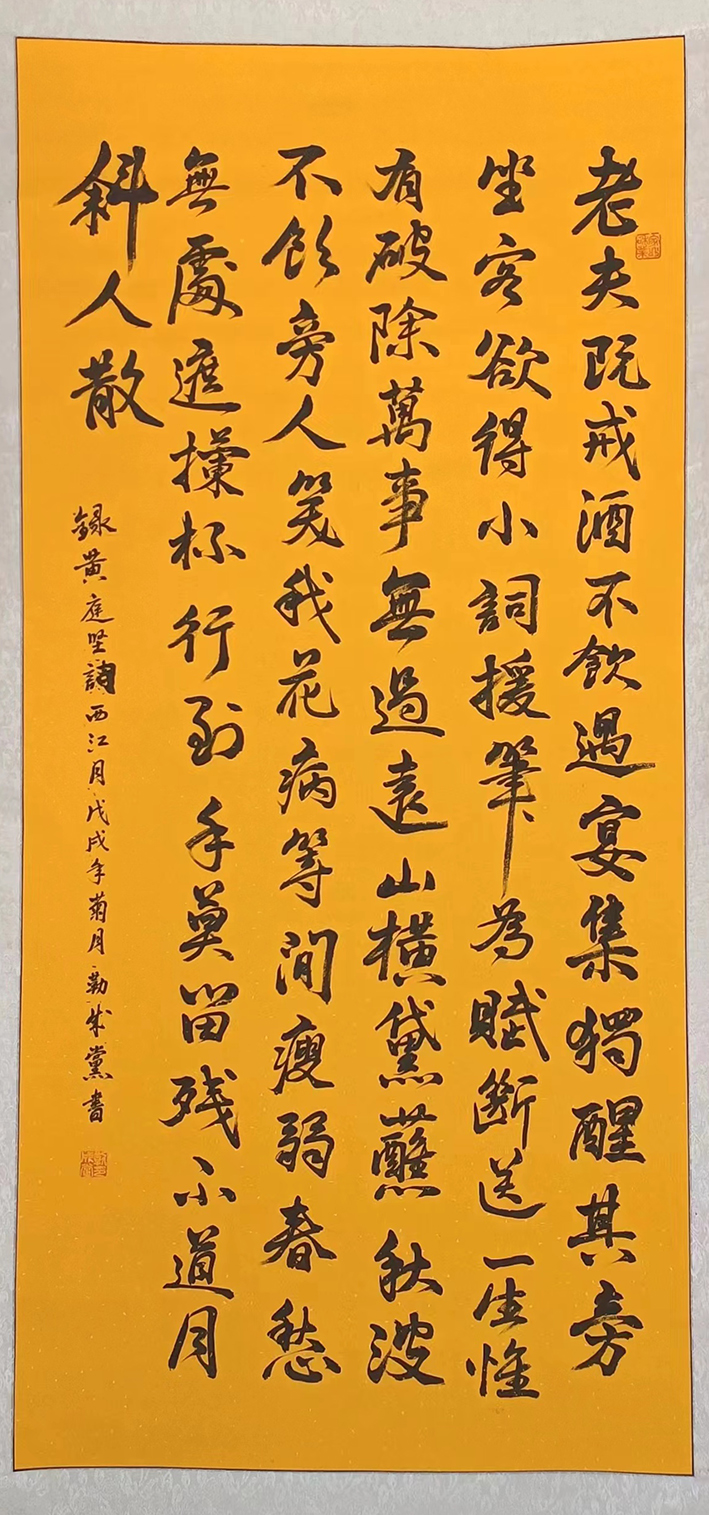 老夫既戒酒不飲遇宴集獨醒其旁
坐客欲得小詞援筆為賦斷送一生惟
有破除萬事無過遠山橫黛蘸秋波
不飲旁人笑我花病等閒瘦弱春愁
無處遮攔杯行到手莫留残不道月
斜人散
錄黄庭坚詞西江月戊戌年菊月勤成黨書